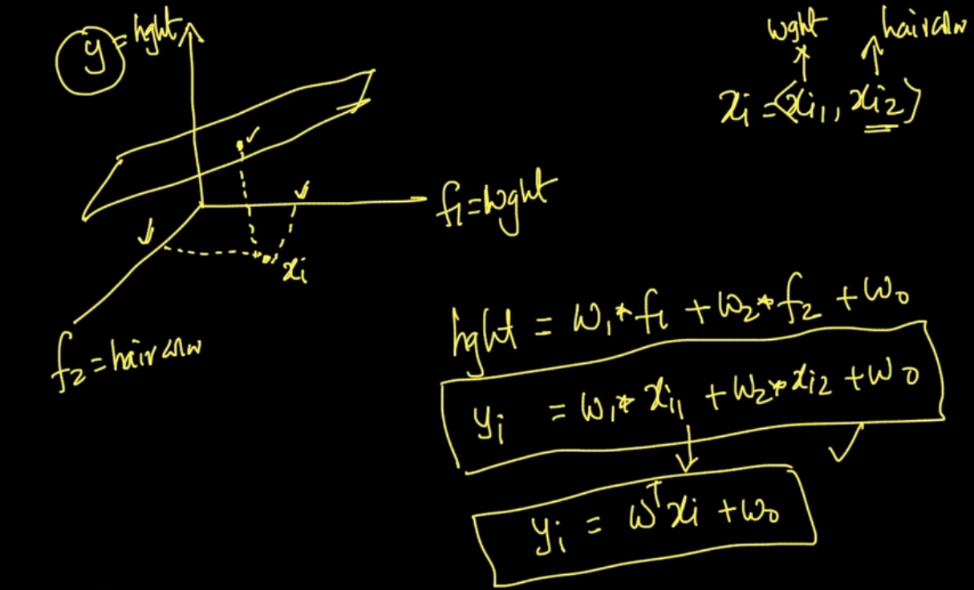 y = hght
wght
haircolor
xi = <xi1, xi2>
f1 = wght
xi
f2 = haircolor
hght = w1 * f1 + w2 * f2 + w0
yi = w1 * xi1 + w2 * xi2 + w0
yi = wᵀxi + w0